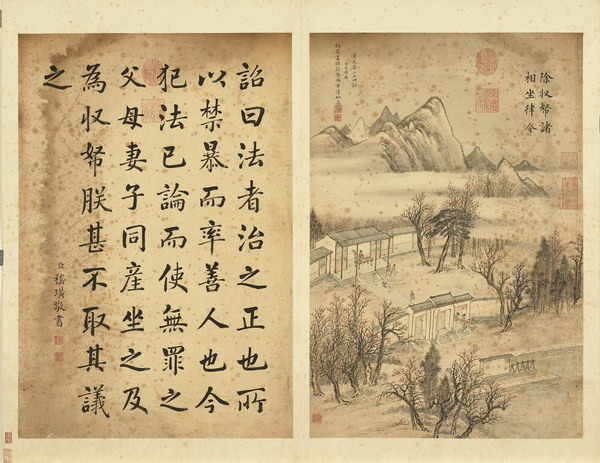 除収帑諸
相坐律令
詔曰法者治之正也所
以禁暴而率善人也今
犯法已論而使無罪之
父母妻子同産坐之及
為収帑朕甚不取其議
之
臣嵇璜敬書